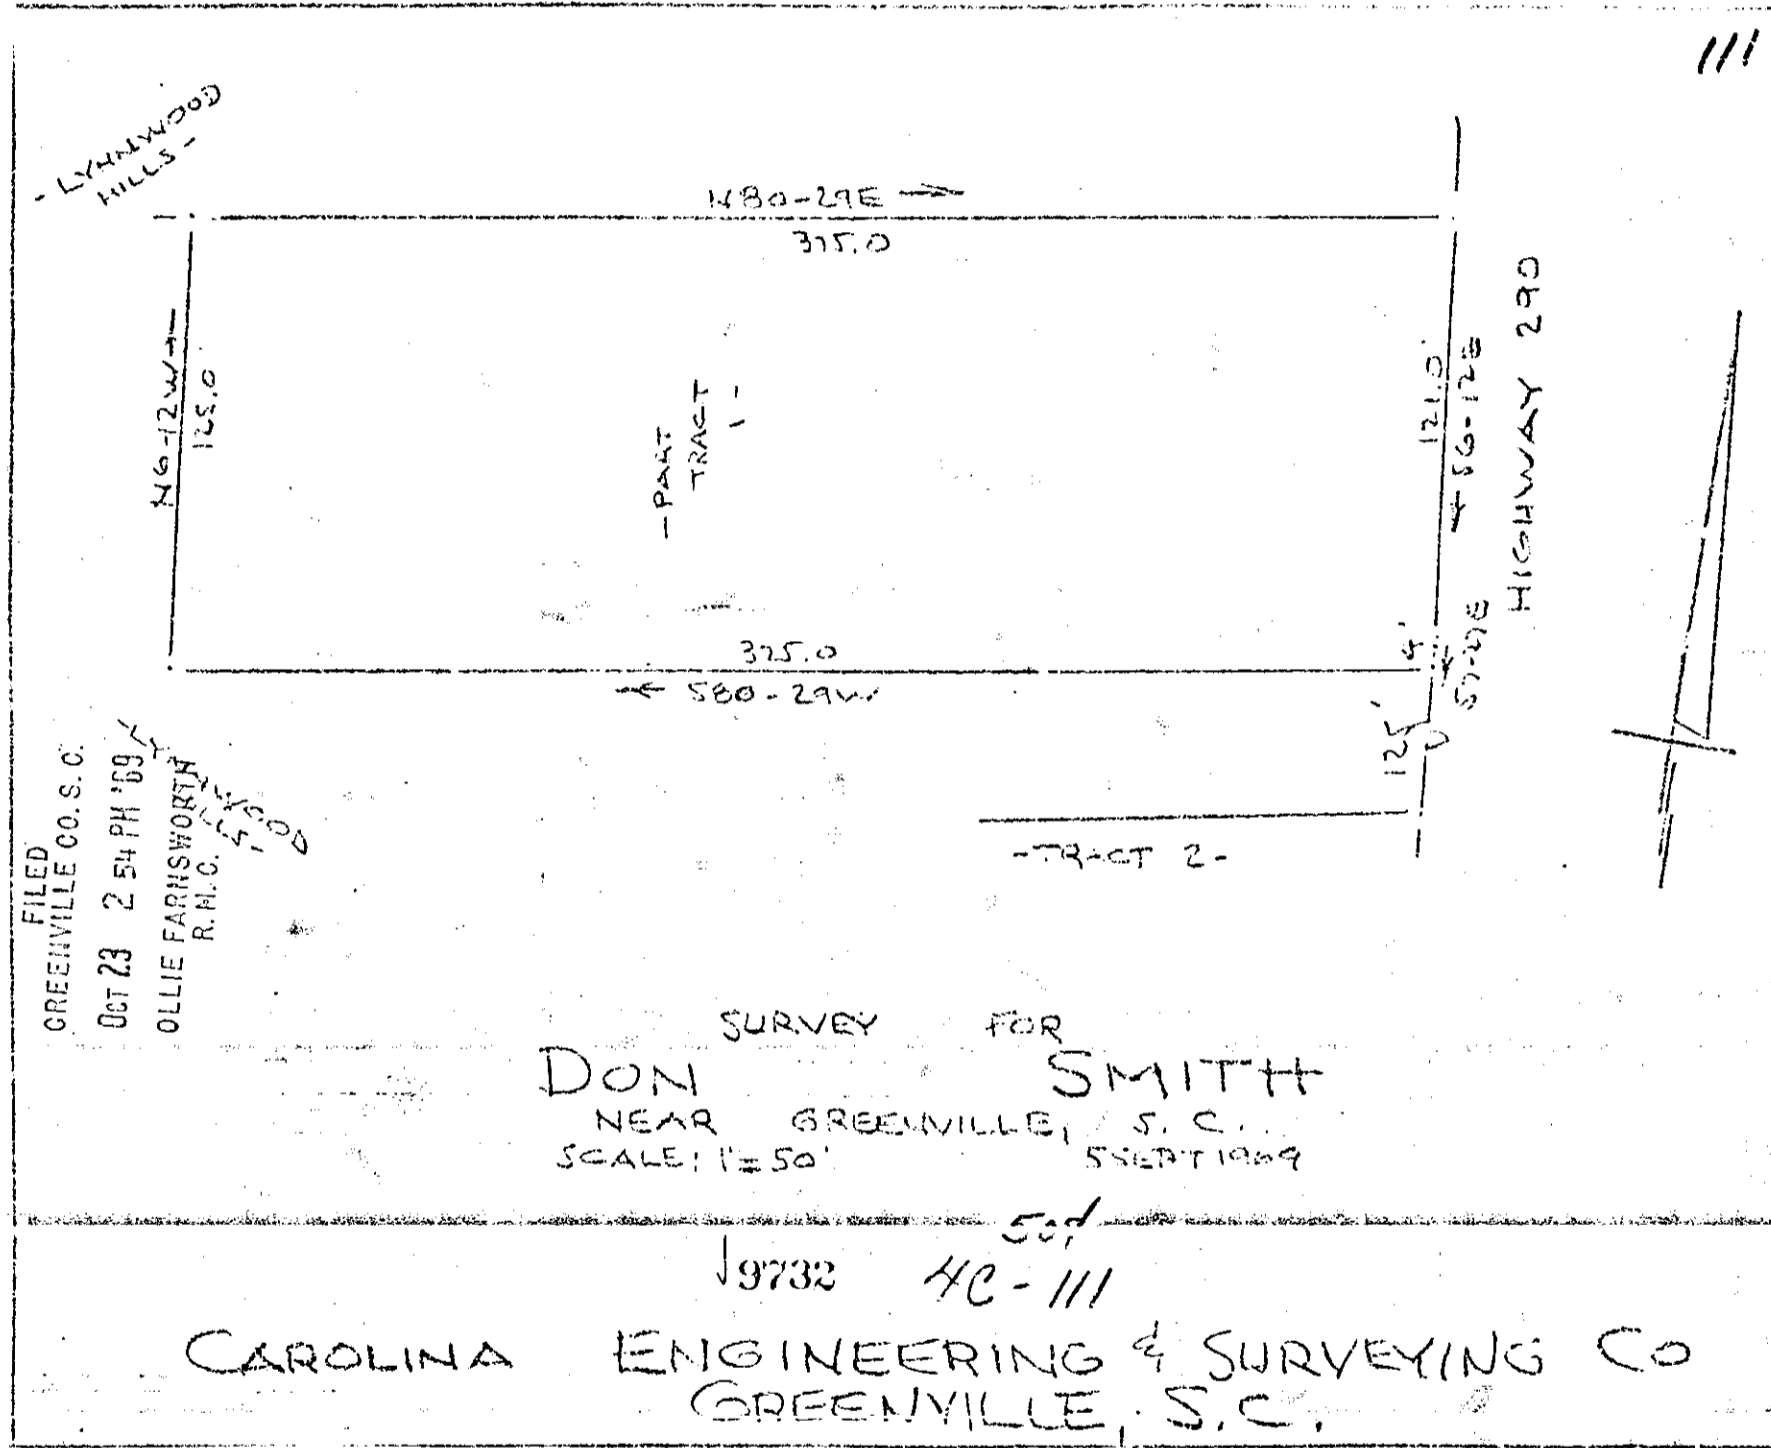 111
- LYNNWOOD
HILLS -
N80-29E →
375.0
N6-12W →
125.0
- PART
TRACT
1 -
121.0'
← S6-12E
HIGHWAY 290
4'
←
325.0
← S80-29W
125'
- TRACT 2 -
FILED
GREENVILLE CO. S. C.
OCT 23 2 54 PM '69
OLLIE FARNSWORTH
R.M.C.
SURVEY FOR
DON SMITH
NEAR GREENVILLE, S. C.
SCALE: 1"=50' 5 SEPT 1969
9732 4C-111
CAROLINA ENGINEERING & SURVEYING CO
GREENVILLE, S.C.